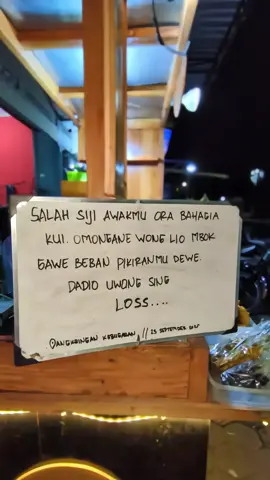 SALAH SIJI AWAKMU ORA BAHAGIA
KUI. OMONGANE WONG LIO MBOK
GAWE BEBAN PIKIRANMU DEWE.
DADIO UWONG SING
LOSS....
@ANGKRINGAN KEBUGARAN // 23 SEPTEMBER